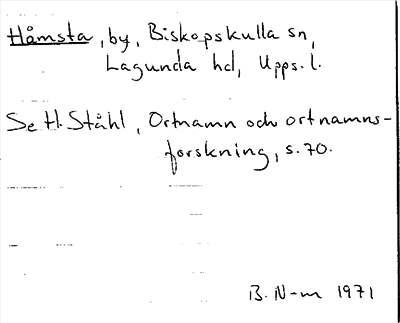 Håmsta, by, Biskopskulla sn,
Lagunda hd, Upps. l.
Se H. Ståhl, Ortnamn och ortnamns-
forskning, s. 70.
B. N-m 1971